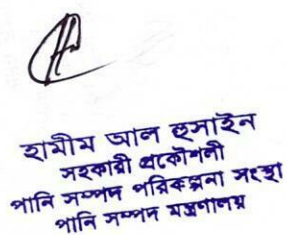 হামীম আল হুসাইন
সহকারী প্রকৌশলী
পানি সম্পদ পরিকল্পনা সংস্থা
পানি সম্পদ মন্ত্রণালয়